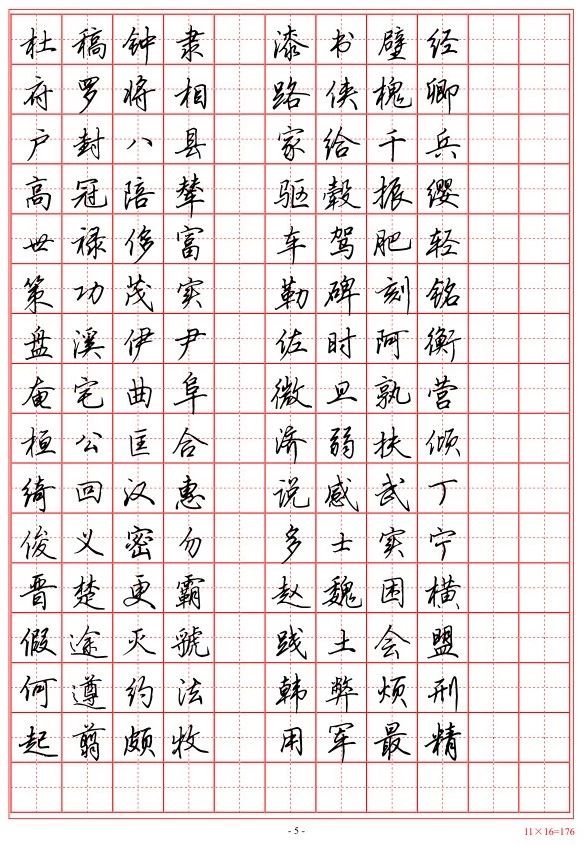 杜稿钟隶 漆书壁经
府罗将相 路侠槐卿
户封八县 家给千兵
高冠陪辇 驱毂振缨
世禄侈富 车驾肥轻
策功茂实 勒碑刻铭
盘溪伊尹 佐时阿衡
奄宅曲阜 微旦孰营
桓公匡合 济弱扶倾
绮回汉惠 说感武丁
俊义密勿 多士实宁
晋楚更霸 赵魏困横
假途灭虢 践土会盟
何遵约法 韩弊烦刑
起翦颇牧 用军最精
- 5 -
11×16=176